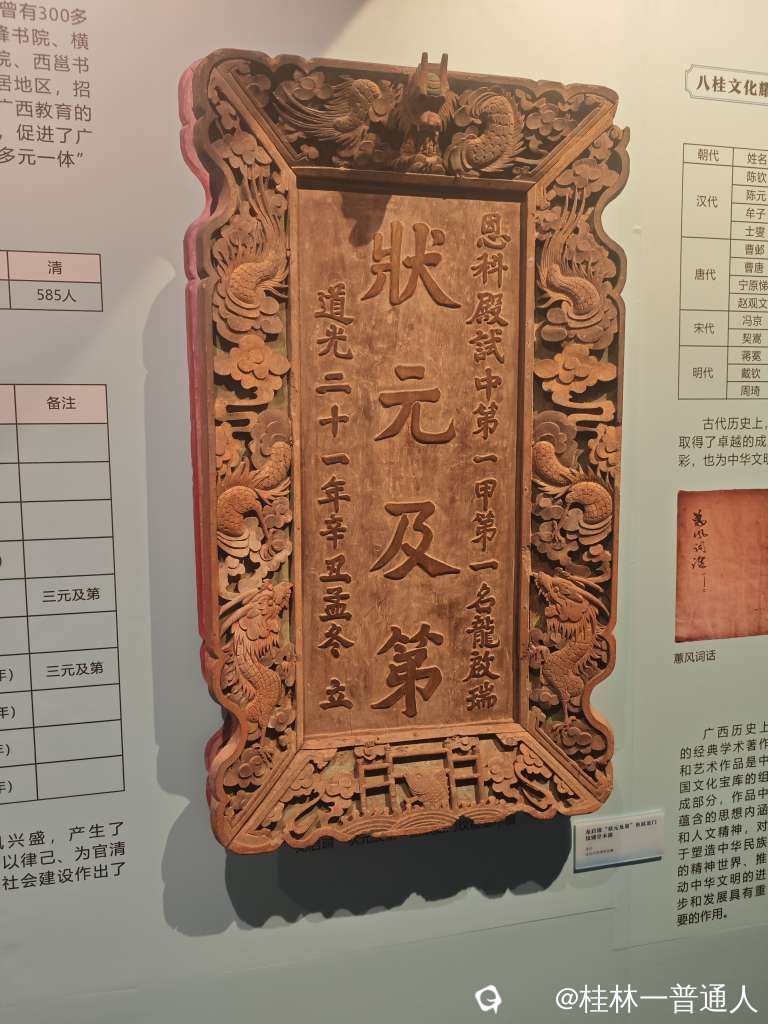 曾有300多
峰书院、横
院、西邕书
居地区，招
广西教育的
，促进了广
多元一体”
清
585人
备注
三元及第
三元及第
年）
年）
年）
年）
风兴盛，产生了
以律己、为官清
社会建设作出了
恩科殿試中第一甲第一名龍啟瑞
狀元及第
道光二十一年辛丑孟冬 立
龙启瑞“状元及第”
八桂文化耀
朝代 姓名
汉代 陈钦
陈元
牟子
士燮
唐代 曹邺
曹唐
宁原悌
赵观文
宋代 冯京
契嵩
明代 蒋冕
戴钦
周琦
古代历史上，
取得了卓越的成
彩，也为中华文明
蕙风词话
蕙风词话
广西历史上
的经典学术著作
和艺术作品是中
国文化宝库的组
成部分，作品中
蕴含的思想内涵
和人文精神，对
于塑造中华民族
的精神世界、推
动中华文明的进
步和发展具有重
要的作用。
@桂林一普通人